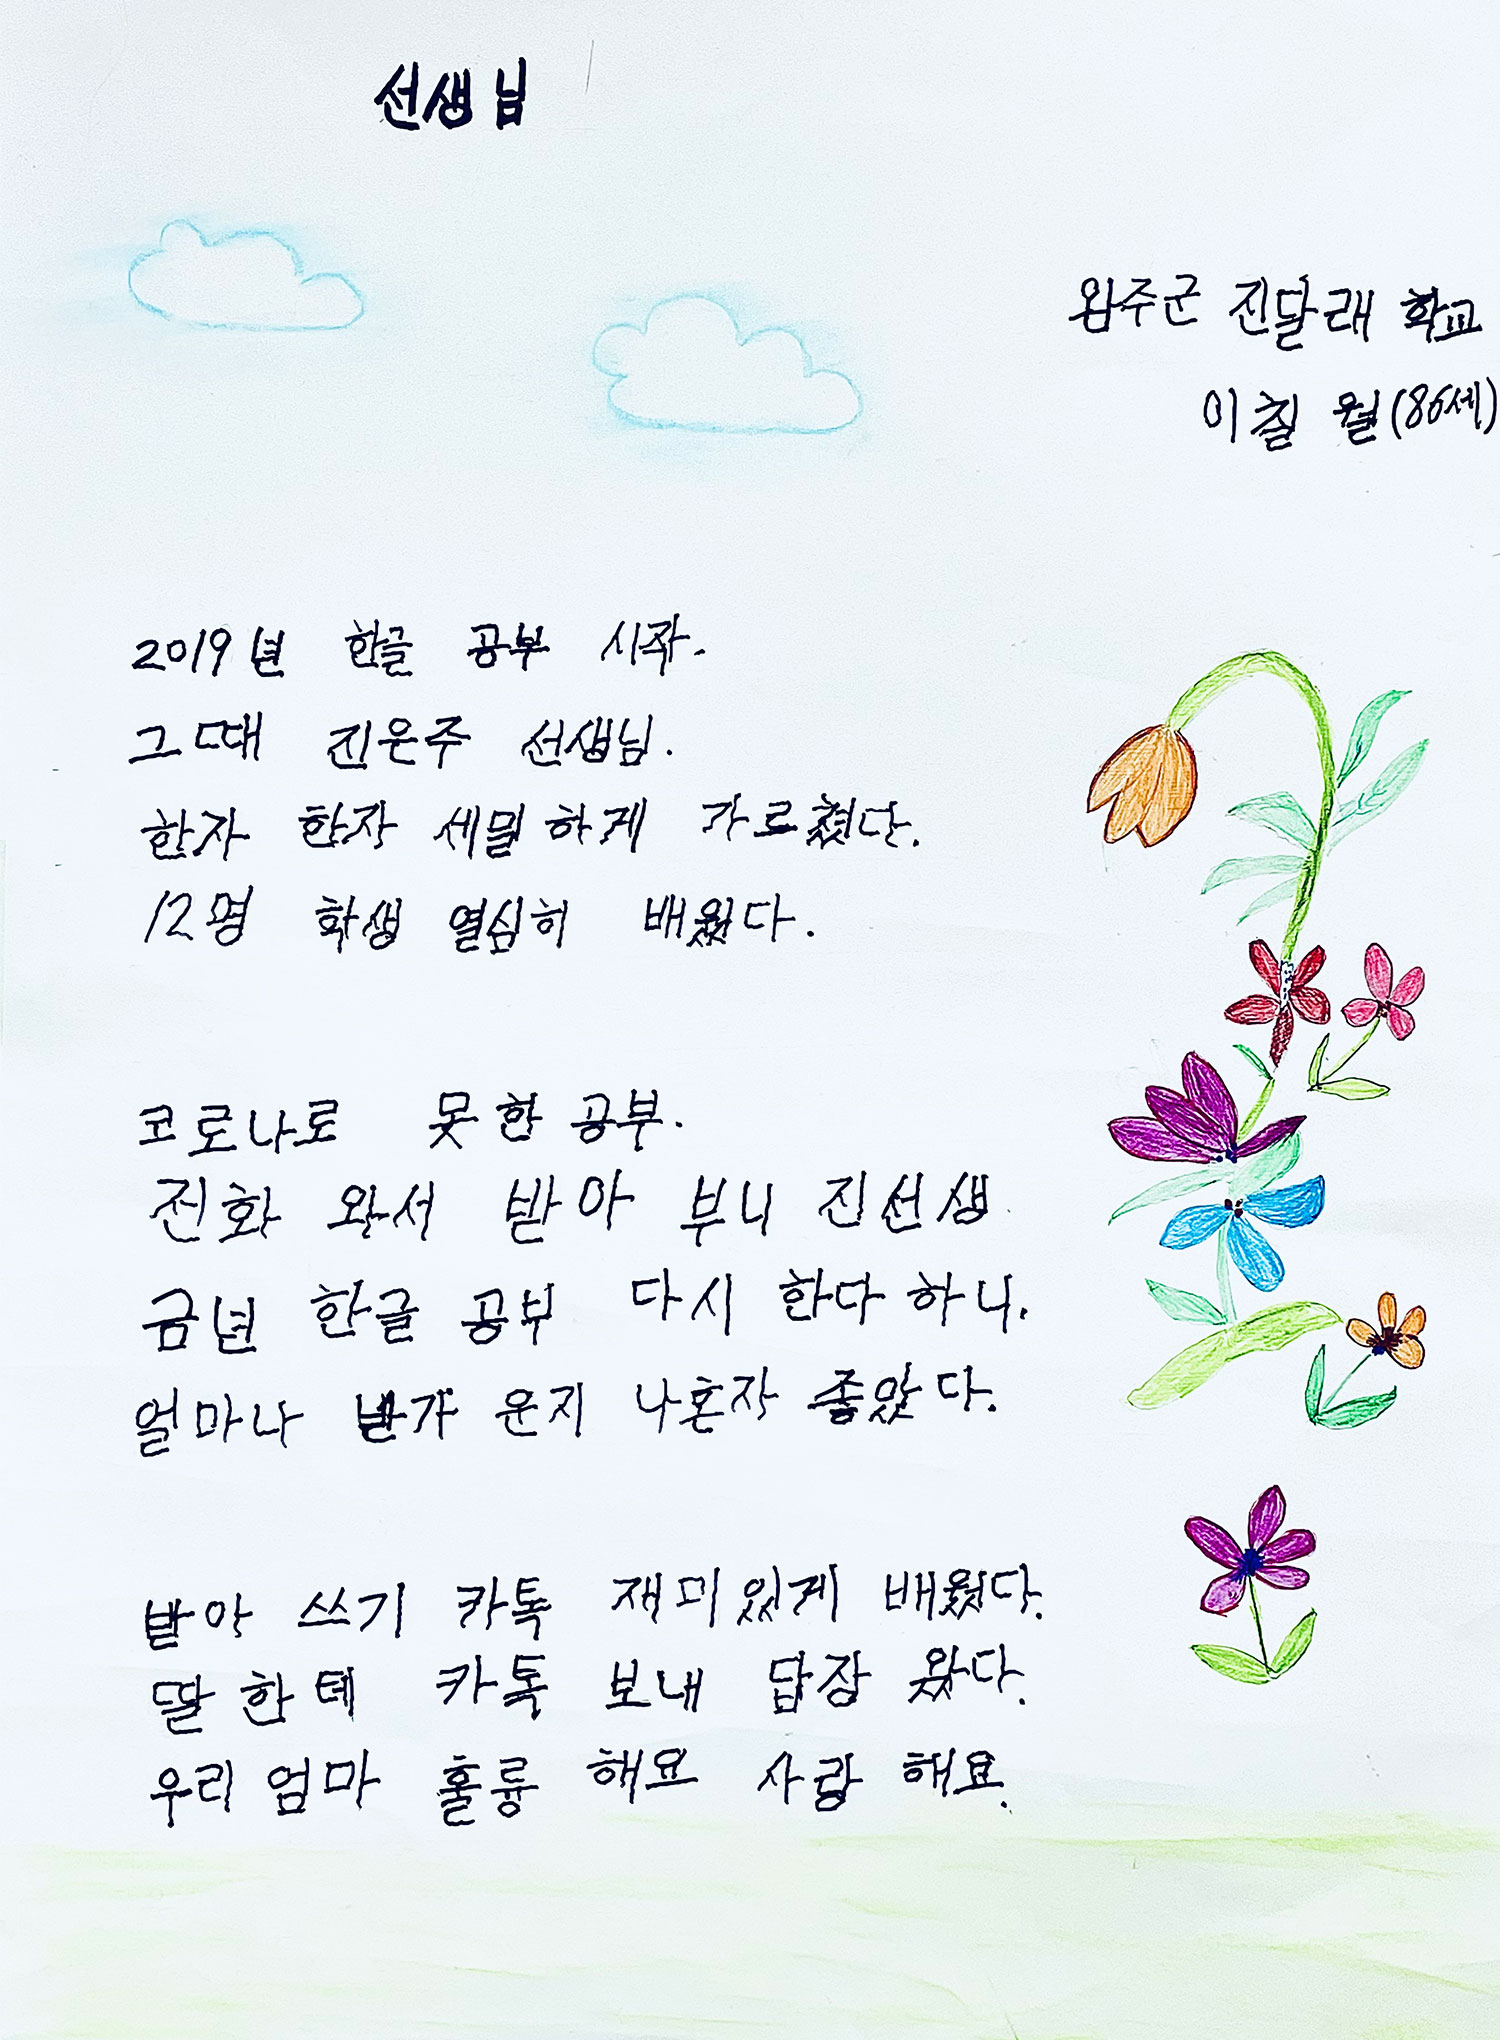 선생님
완주군 진달래 학교
이칠월(86세)
2019년 한글 공부 시작.
그때 진은주 선생님.
한자 한자 세밀하게 가르쳤다.
12명 학생 열심히 배웠다.
코로나로 못한 공부.
전화 와서 받아 부니 진선생
금년 한글 공부 다시 한다 하니.
얼마나 반가운지 나혼자 좋았다.
받아 쓰기 카톡 재미있게 배웠다.
딸한테 카톡 보내 답장 왔다.
우리 엄마 훌륭 해요 사랑 해요.